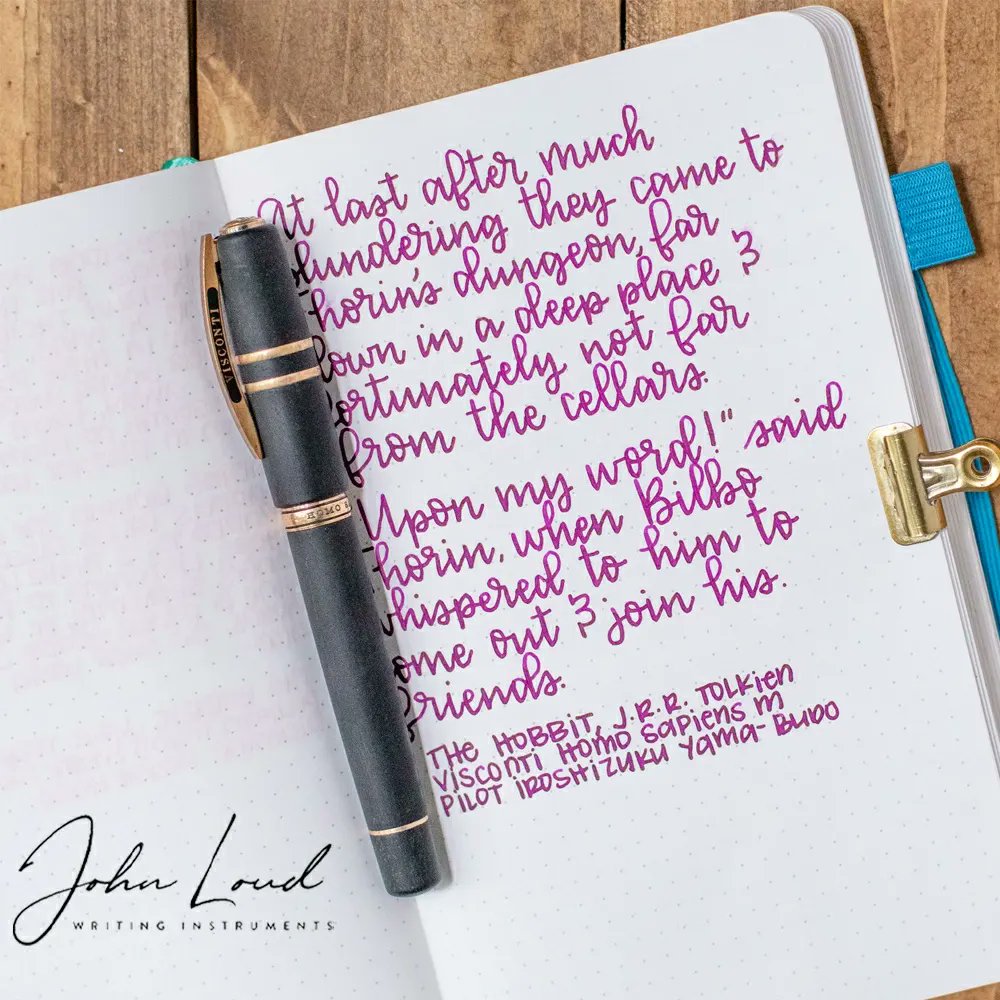 At last after much
blundering they came to
Thorin's dungeon, far
down in a deep place &
fortunately not far
from the cellars.
Upon my word!" said
Thorin, when Bilbo
whispered to him to
come out & join his
friends.
THE HOBBIT, J.R.R. TOLKIEN
VISCONTI HOMO SAPIENS M
PILOT IROSHIZUKU YAMA-BUDO
VISCONTI
HOMO S
John Loud
WRITING INSTRUMENTS